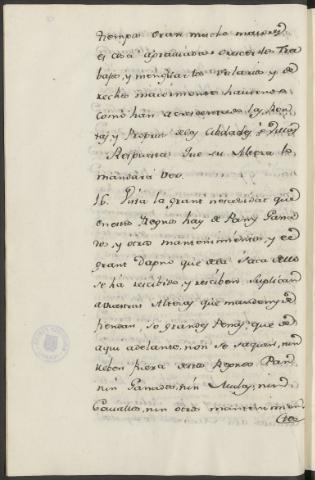 tiempos eran mucho maiores
el es a apreciados crecer les Tra
bajo, y menguarles Salarios y de
rechos maiormente haviendo
como han acrecentado las Ren
tas y Propios de las Cibdades e Villas
Respuesta. Que su Alteza lo
mandará veer.
16. Vista la grant necesidad que
en estos Regnos hay de Pan y Gana
dos, y otros mantenimientos, y el
grant Dapno que dela Saca dello
se ha recibido, y reciben Suplican
a vuestras Altezas que manden, y de
fiendan, so grandes Penas, que de
aqui adelante, non se saquen, nin
lleben fuera destos Regnos Pan,
nin Ganados, nin Mulas, nin
Cavallos, nin otros mantenimien